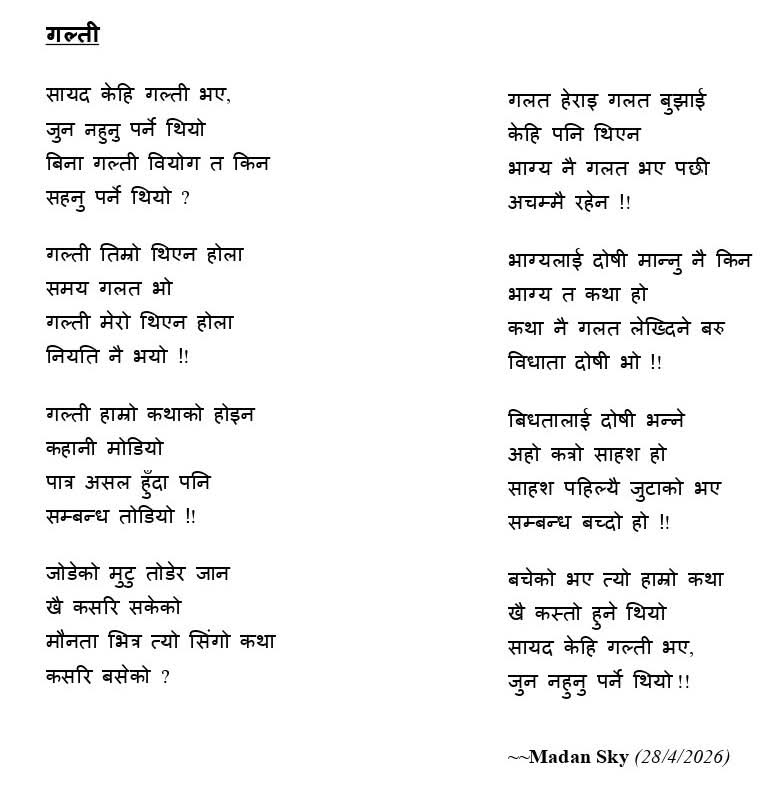 गल्ती
सायद केहि गल्ती भए,
जुन नहुनु पर्ने थियो
बिना गल्ती वियोग त किन
सहनु पर्ने थियो ?
गल्ती तिम्रो थिएन होला
समय गलत भो
गल्ती मेरो थिएन होला
नियति नै भयो !!
गल्ती हाम्रो कथाको होइन
कहानी मोडियो
पात्र असल हुँदा पनि
सम्बन्ध तोडियो !!
जोडेको मुटु तोडेर जान
खै कसरि सकेको
मौनता भित्र त्यो सिंगो कथा
कसरि बसेको ?
गलत हेराइ गलत बुझाई
केहि पनि थिएन
भाग्य नै गलत भए पछी
अचम्मै रहेन !!
भाग्यलाई दोषी मान्नु नै किन
भाग्य त कथा हो
कथा नै गलत लेख्दिने बरु
विधाता दोषी भो !!
बिधतालाई दोषी भन्ने
अहो कत्रो साहश हो
साहश पहिल्यै जुटाको भए
सम्बन्ध बच्दो हो !!
बचेको भए त्यो हाम्रो कथा
खै कस्तो हुने थियो
सायद केहि गल्ती भए,
जुन नहुनु पर्ने थियो !!
~~Madan Sky (28/4/2026)